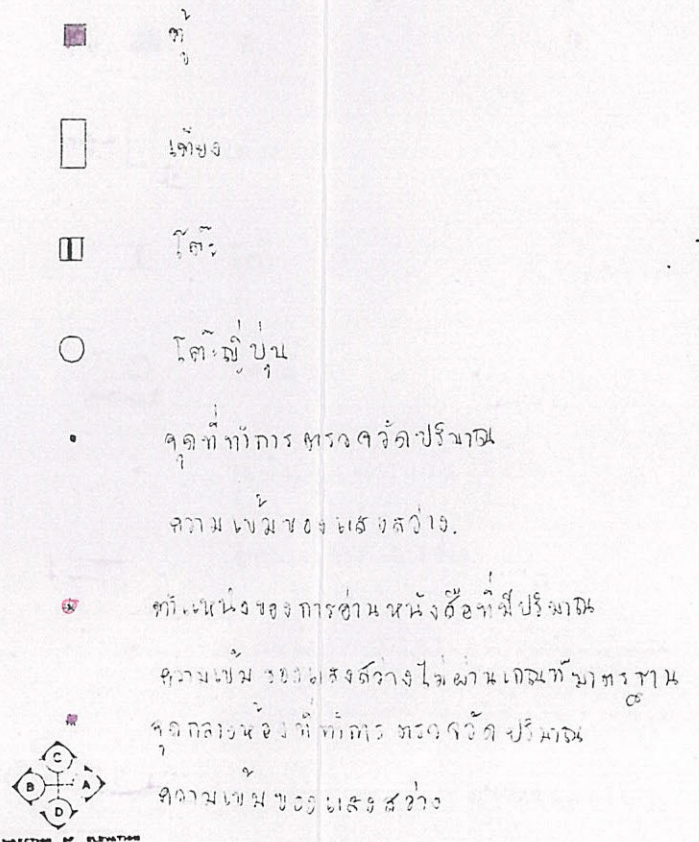 ตู้
เตียง
โต๊ะ
โต๊ะญี่ปุ่น
จุดที่ทำการตรวจวัดปริมาณ
ความเข้มของแสงสว่าง.
ตำแหน่งของการอ่านหนังสือที่มีปริมาณ
ความเข้มของแสงสว่างไม่ผ่านเกณฑ์มาตรฐาน
จุดกลางห้องที่ทำการตรวจวัดปริมาณ
ความเข้มของแสงสว่าง
C
B A
D
DIRECTION OF ELEVATION